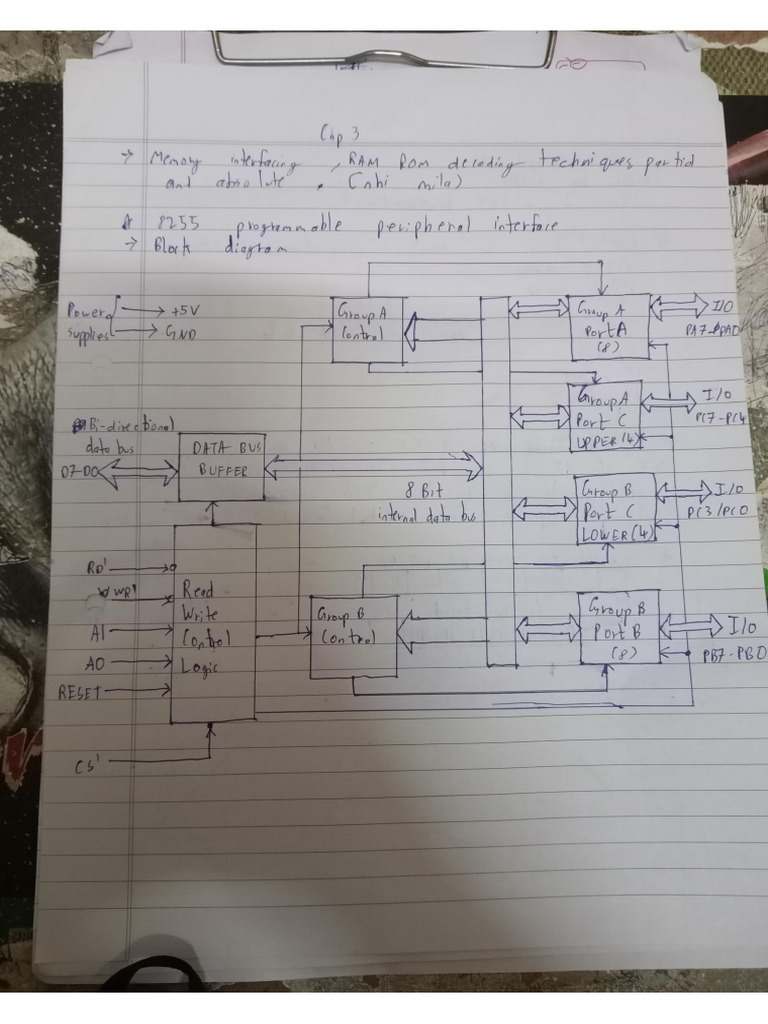 Chp 3
→ Memory interfacing , RAM ROM decoding techniques partial
and absolute . (nhi mila)
8255 programmable peripheral interface
→ Block diagram
Power supplies
→ +5V
→ GND
Group A
Control
Group A
Port A
(8)
I/O
PA7-PA0
Group A
Port C
UPPER(4)
I/O
PC7-PC4
Bi-directional
data bus
D7-D0
DATA BUS
BUFFER
8 Bit
internal data bus
Group B
Port C
LOWER(4)
I/O
PC3/PC0
RD'
WR'
A1
A0
RESET
CS'
Read
Write
Control
Logic
Group B
Control
Group B
Port B
(8)
I/O
PB7-PB0